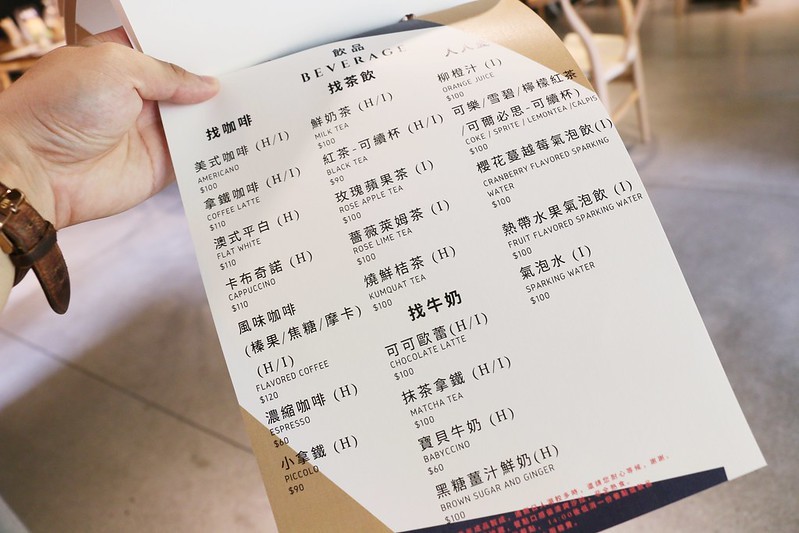 飲品
BEVERAGE
找咖啡
美式咖啡 (H/I)
AMERICANO
$100
拿鐵咖啡 (H/I)
COFFEE LATTE
$110
澳式平白 (H)
FLAT WHITE
$110
卡布奇諾 (H)
CAPPUCCINO
$110
風味咖啡
(榛果/焦糖/摩卡)
(H/I)
FLAVORED COFFEE
$120
濃縮咖啡 (H)
ESPRESSO
$60
小拿鐵 (H)
PICCOLO
$90
找茶飲
鮮奶茶 (H/I)
MILK TEA
$100
紅茶-可續杯 (H/I)
BLACK TEA
$90
玫瑰蘋果茶 (I)
ROSE APPLE TEA
$100
薔薇萊姆茶 (I)
ROSE LIME TEA
$100
燒鮮桔茶 (H)
KUMQUAT TEA
$100
找牛奶
可可歐蕾(H/I)
CHOCOLATE LATTE
$100
抹茶拿鐵 (H/I)
MATCHA TEA
$100
寶貝牛奶 (H)
BABYCCINO
$60
黑糖薑汁鮮奶(H)
BROWN SUGAR AND GINGER
$100
柳橙汁 (I)
ORANGE JUICE
$100
可樂/雪碧/檸檬紅茶
/可爾必思-可續杯)
COKE / SPRITE / LEMONTEA /CALPIS
$100
櫻花蔓越莓氣泡飲(I)
CRANBERRY FLAVORED SPARKING
WATER
$100
熱帶水果氣泡飲 (I)
FRUIT FLAVORED SPARKING WATER
$100
氣泡水 (I)
SPARKING WATER
$100